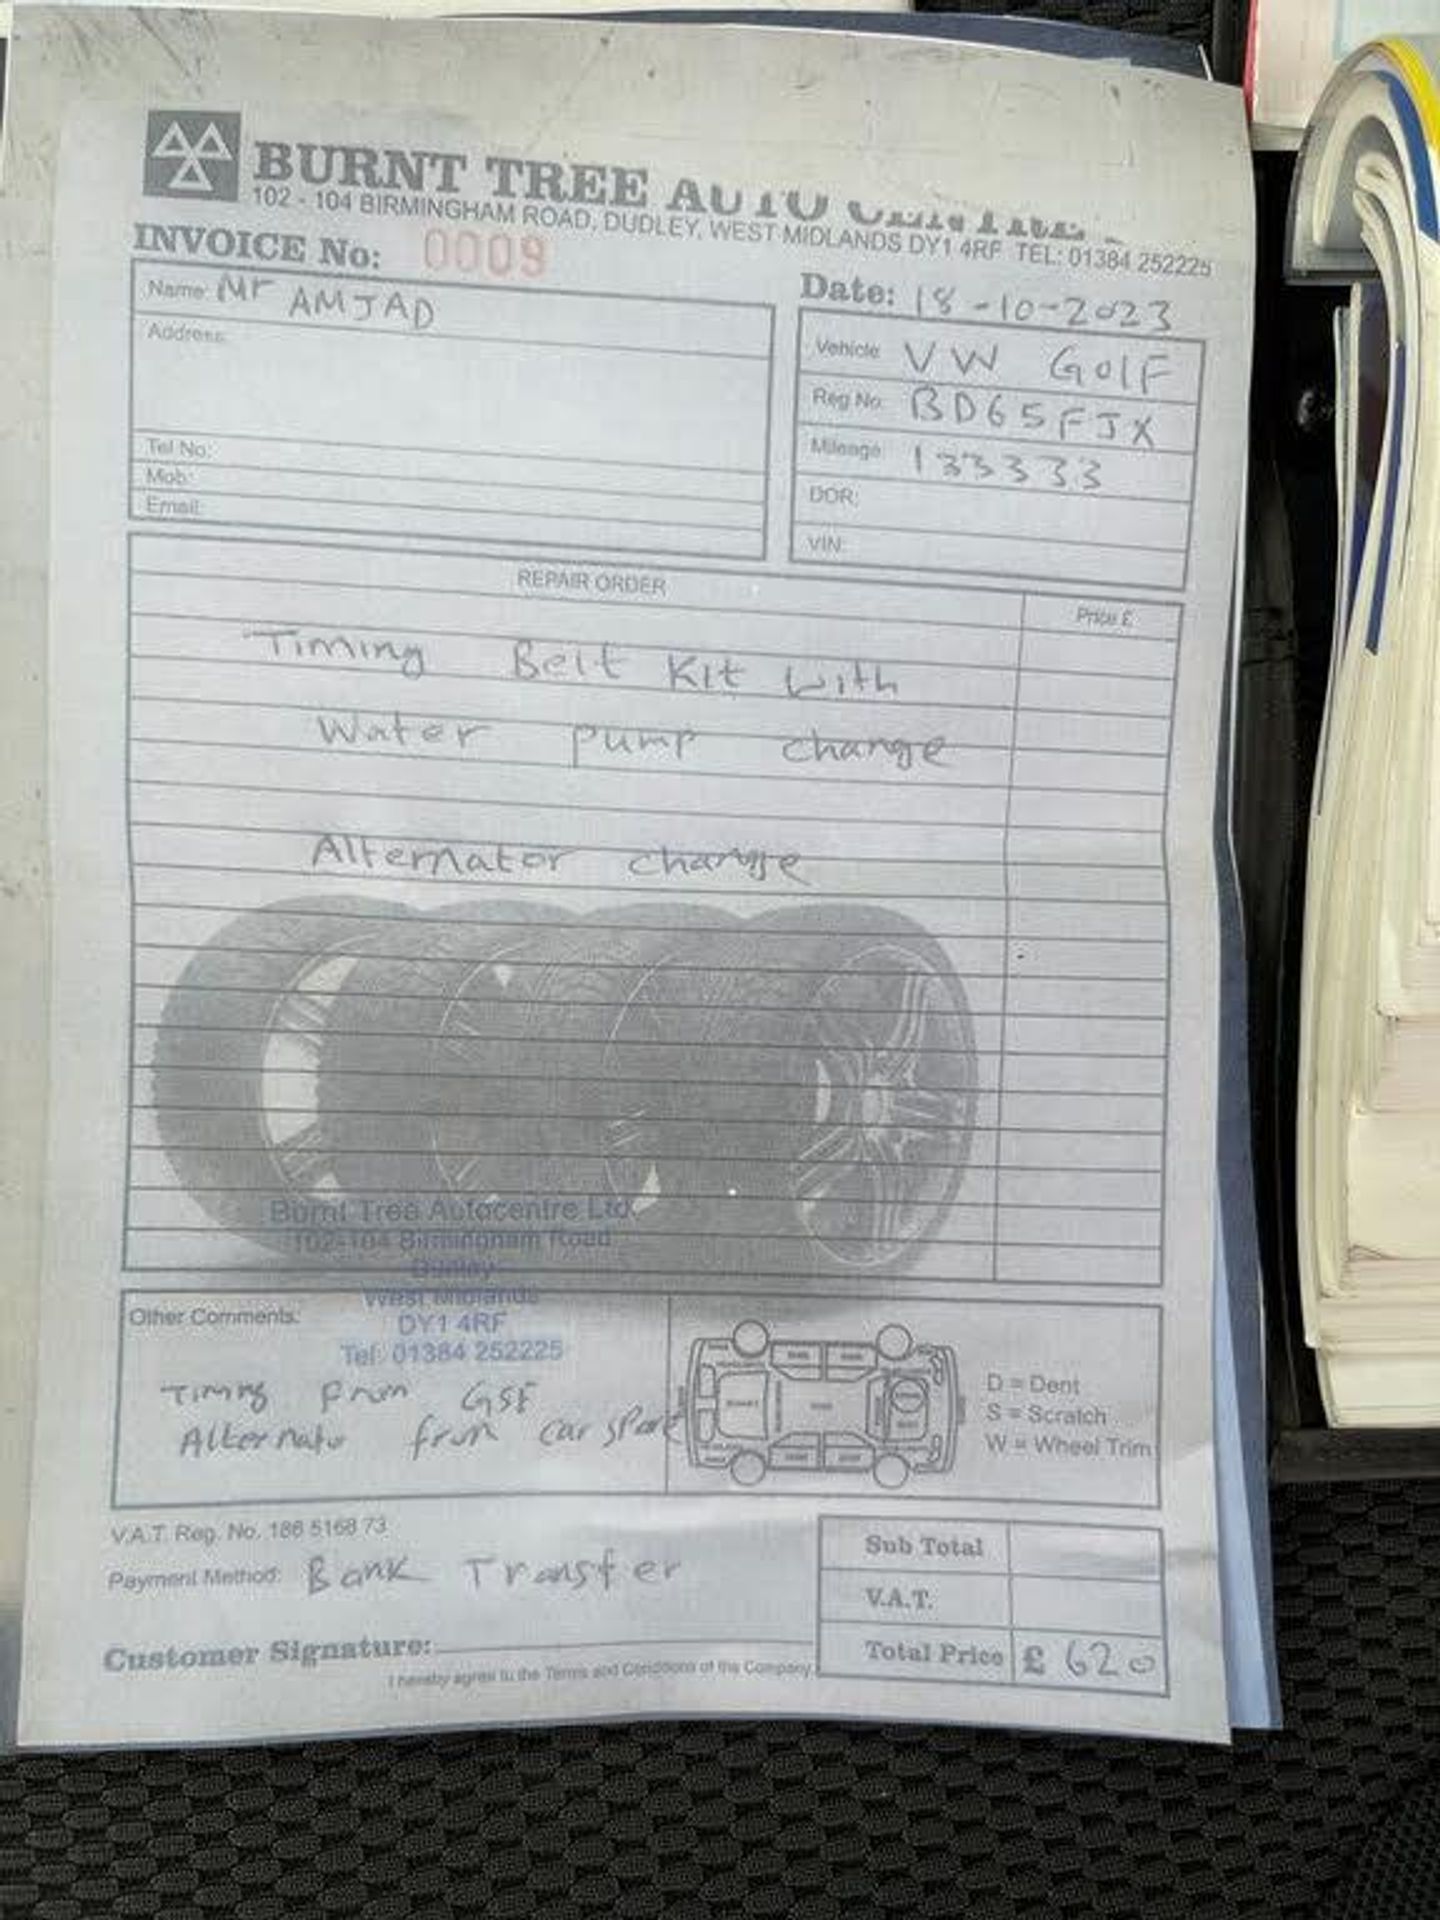 BURNT TREE AUTO CENTRE
102 - 104 BIRMINGHAM ROAD, DUDLEY, WEST MIDLANDS DY1 4RF TEL: 01384 252225
INVOICE No: 0009
Date: 18-10-2023
Name: Mr AMJAD
Address:
Tel No:
Mob:
Email:
Vehicle: VW GOlF
Reg No: BD65FJX
Mileage: 133333
DOR:
VIN:
REPAIR ORDER
Price £
Timing Belt Kit with
Water pump change
Alternator change
Burnt Tree Autocentre Ltd.
102-104 Birmingham Road
Dudley
West Midlands
DY1 4RF
Tel: 01384 252225
Other Comments:
Timing from GSF
Alternato from car spare
D = Dent
S = Scratch
W = Wheel Trim
V.A.T. Reg. No. 186 5168 73
Payment Method: Bank Transfer
Sub Total
V.A.T.
Total Price £ 620
Customer Signature:
I hereby agree to the Terms and Conditions of the Company.